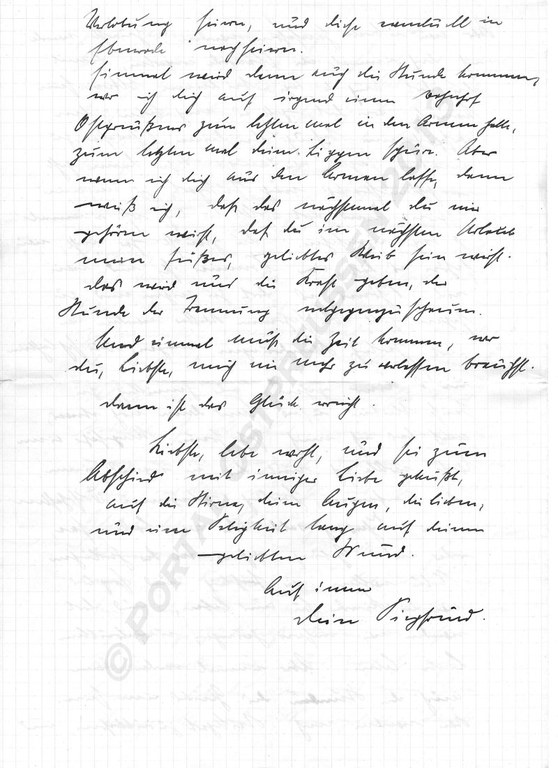 Verlobung feiern, und diese eventuell in
Ebenrode nachfeiern.
Einmal wird dann auch die Stunde kommen,
wo ich dich auf irgend einem Bahnhof
Ostpreußens zum letzten mal in den Armen halte,
zum letzten mal deine Lippen spüre. Aber
wenn ich dich aus den Armen lasse, dann
weiß ich, daß das nächstemal du mir
gehören wirst, daß du im nächsten Urlaub
mein süßes, geliebtes Weib sein wirst.
das wird uns die Kraft geben, der
Stunde der Trennung entgegenzuschauen.
Und einmal muß die Zeit kommen, wo
du, Liebste, mich nie mehr zu verlassen brauchst.
dann ist das Glück erreicht.
Liebste, lebe wohl, und sei zum
Abschied mit inniger Liebe geküßt,
auf die Stirne, deine Augen, die lieben,
und eine Seligkeit lang auf deinen
geliebten Mund.
Auf immer
dein Siegfried.
© PORTA OSTPREUSSEN